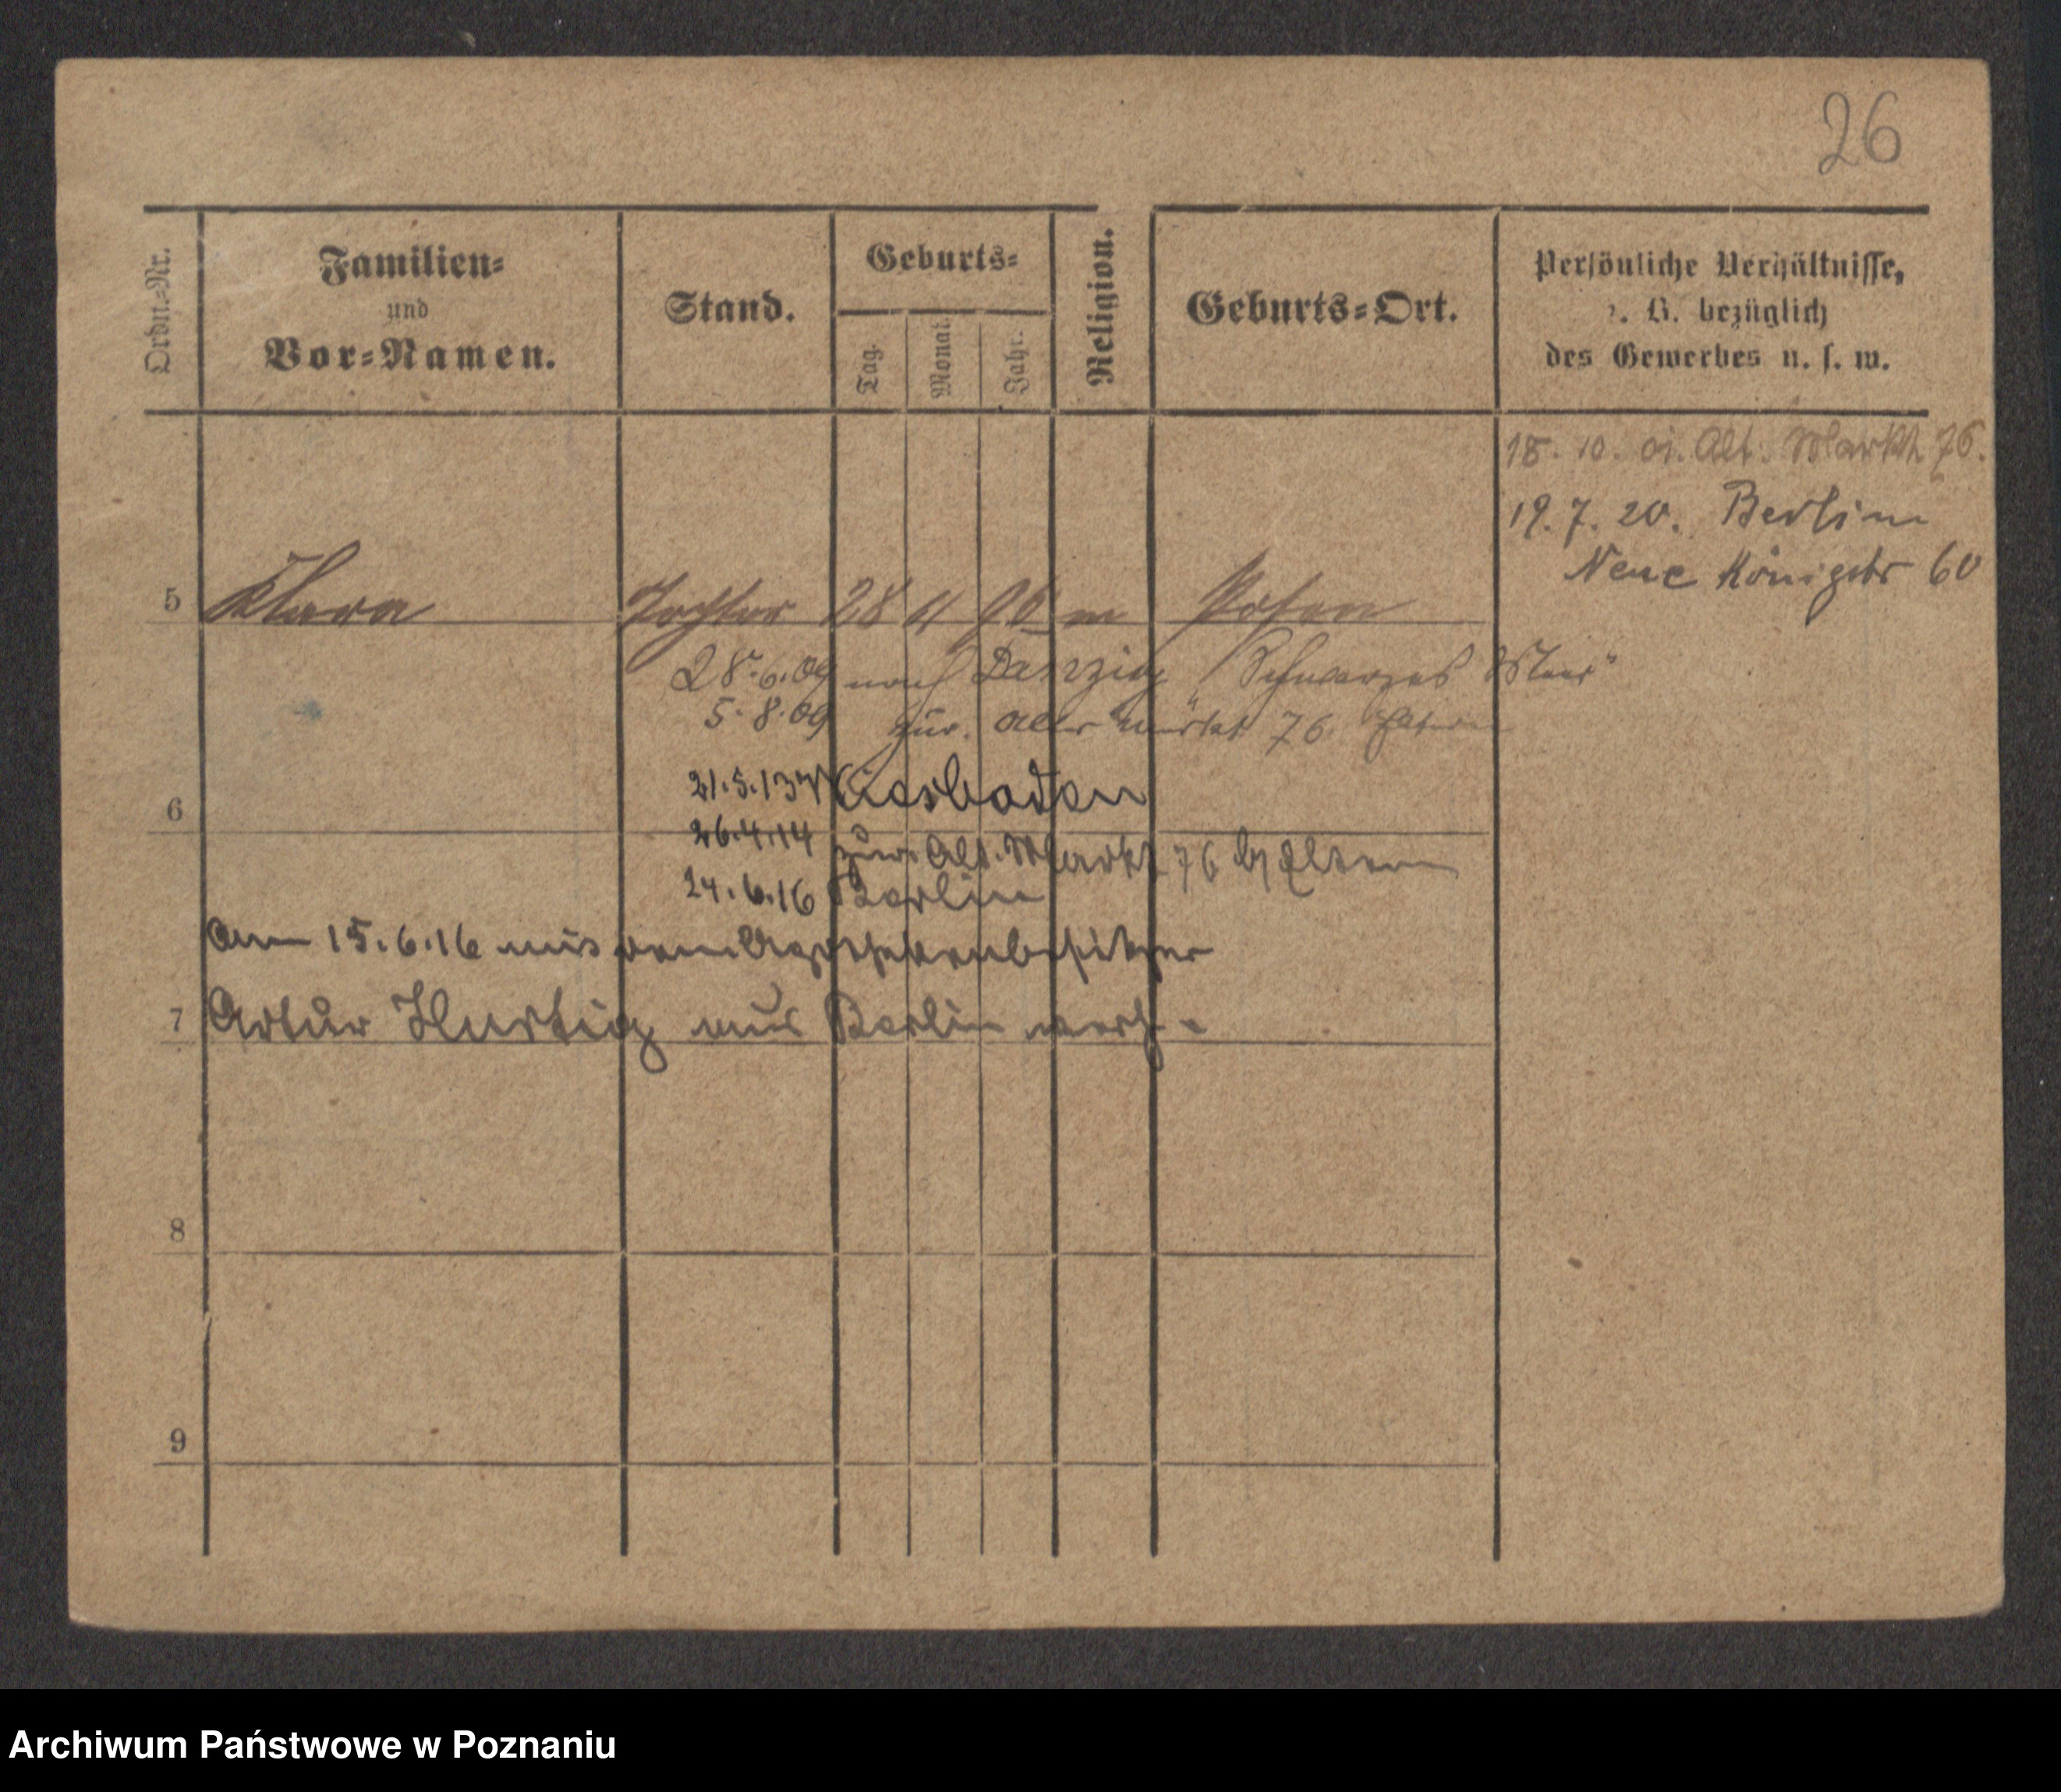 26
Ordn.-Nr.
Familien-
und
Vor-Namen.
Stand.
Geburts-
Tag.
Monat.
Jahr.
Religion.
Geburts-Ort.
Persönliche Verhältnisse,
z. B. bezüglich
des Gewerbes u. s. w.
18. 10. 01. Alt. Markt 76.
19. 7. 20. Berlin
Neue Königstr 60
5 Klara Tochter 28 11 96 m Posen
28.6.09 nach Danzig "Schwarzes Meer"
5.8.09 zur. Alter Markt 76 Eltern
21.5.13 Wiesbaden
6
26.4.14 zur. Alt. Markt 76 b/ Eltern
24.6.16 Berlin
Am 15.6.16 mit dem Apothekenbesitzer
7 Artur Hurtig aus Berlin verh.
8
9
Archiwum Państwowe w Poznaniu